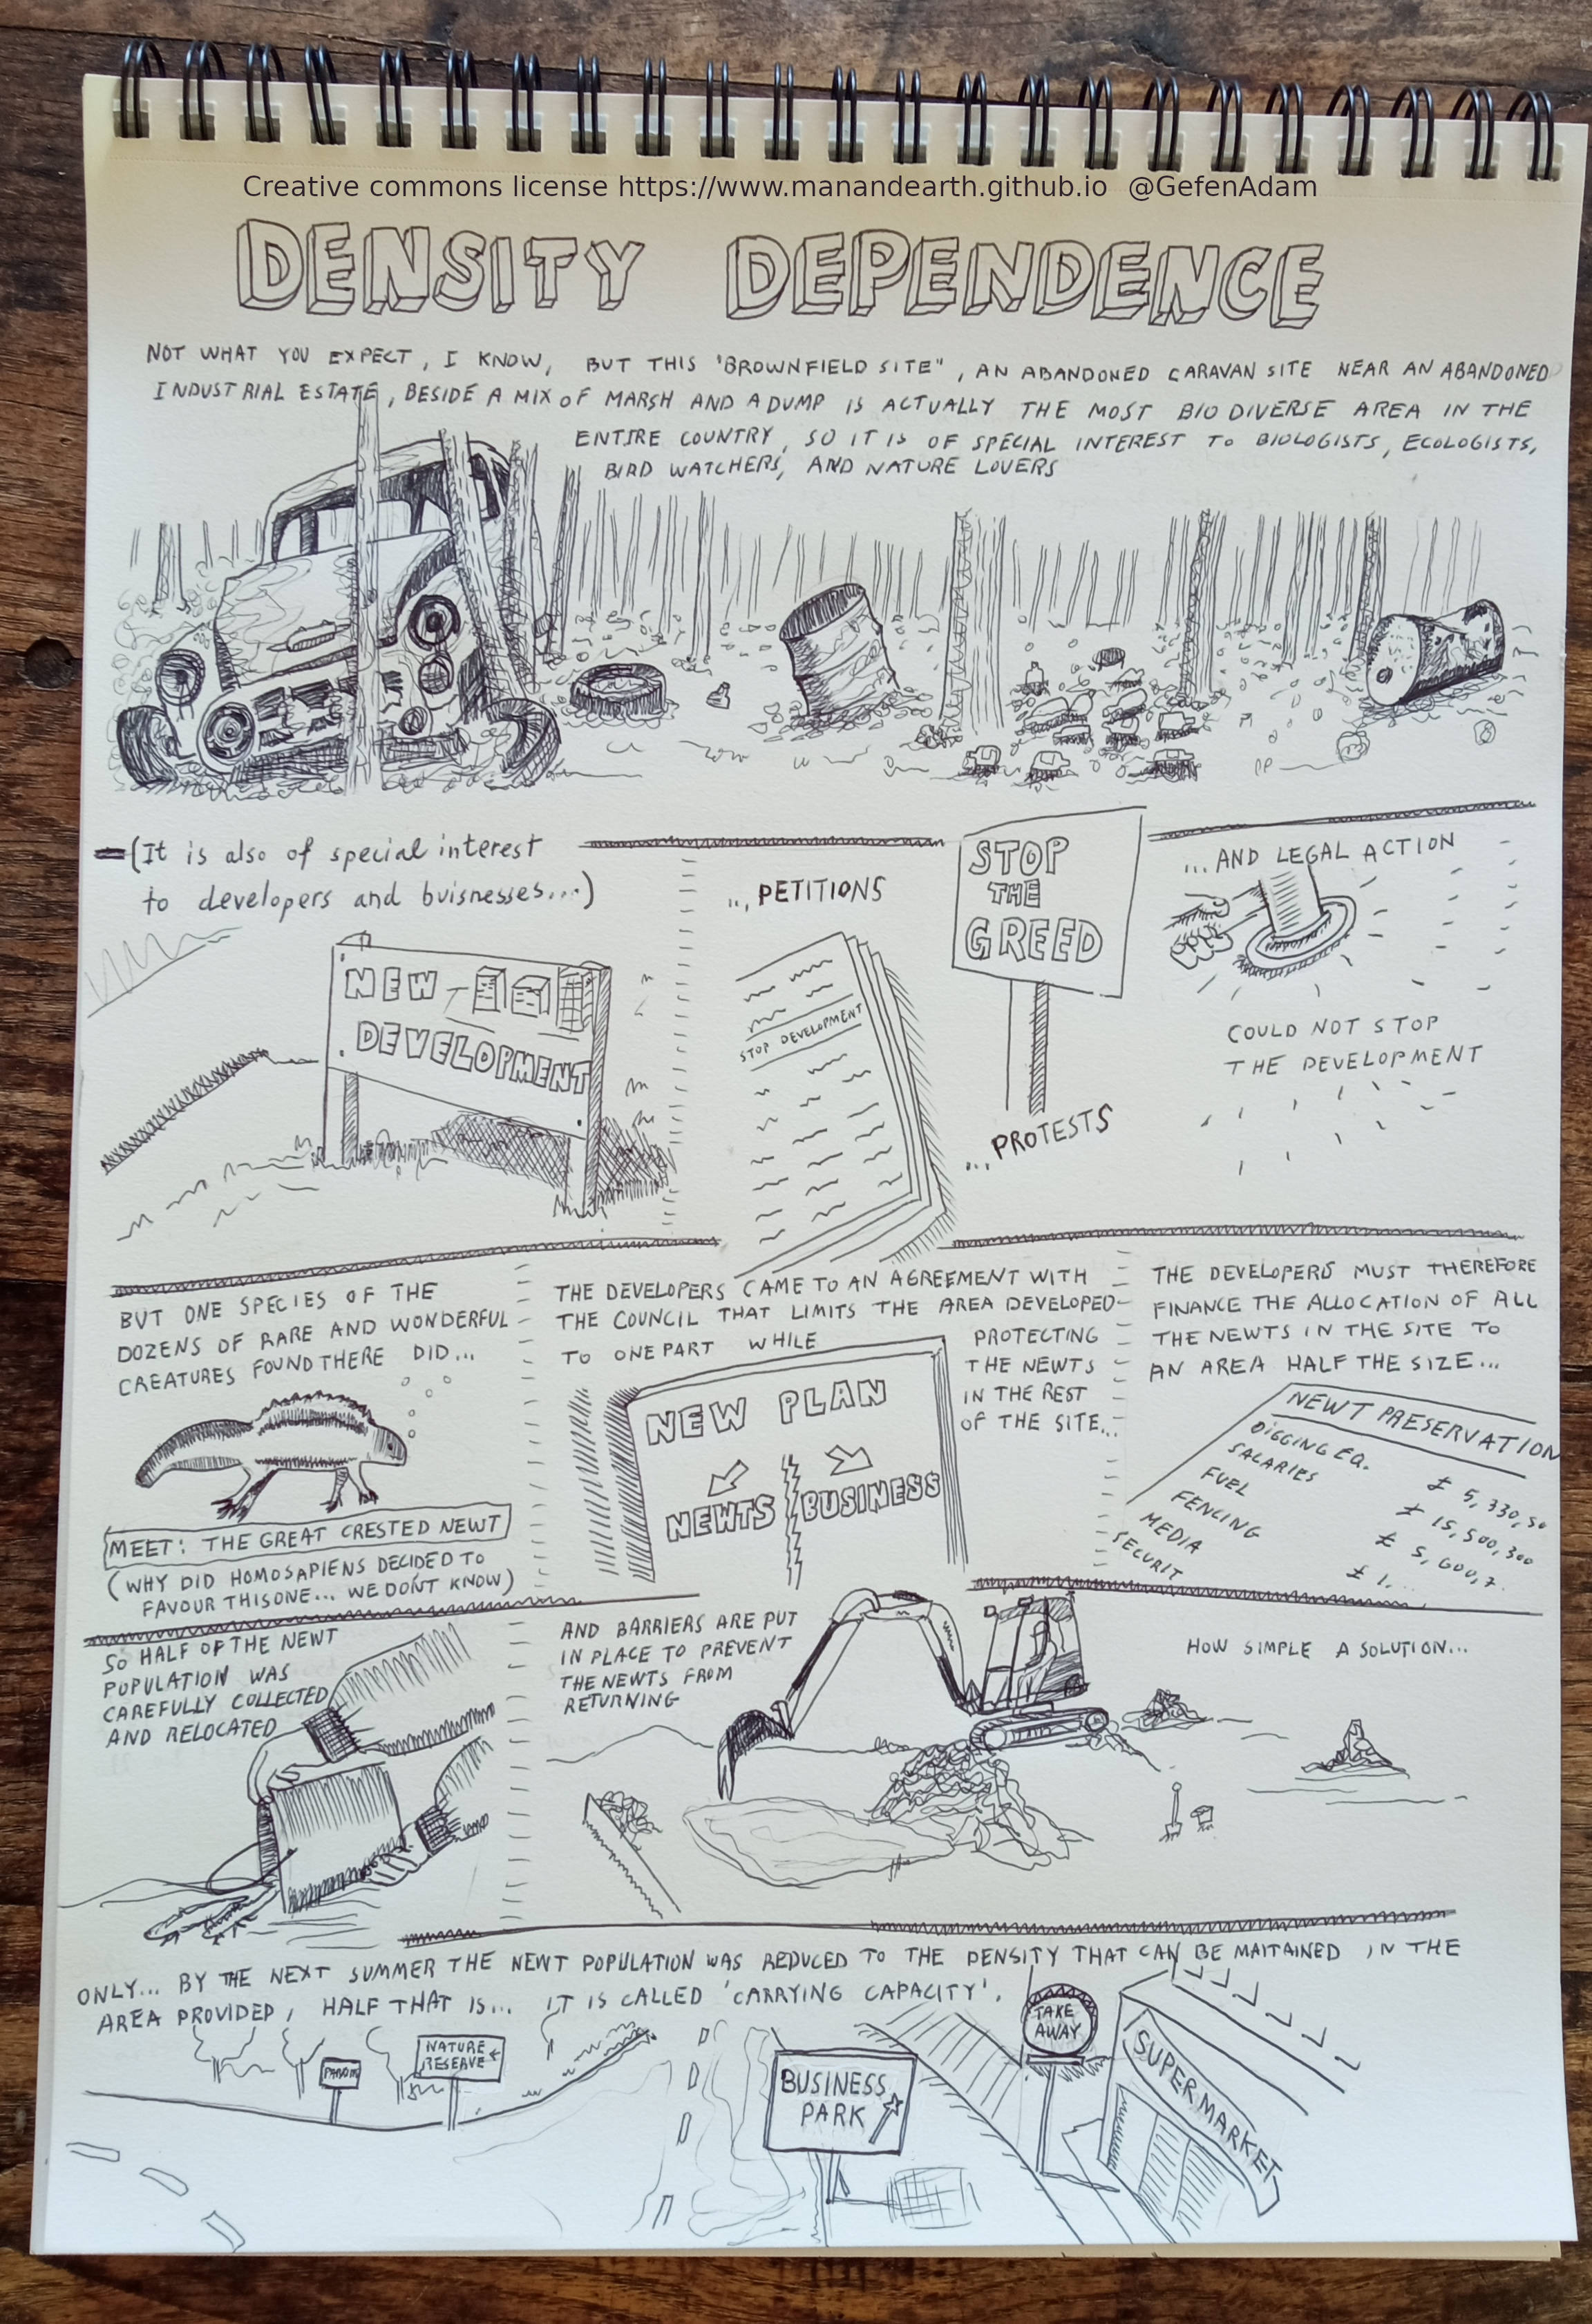 Creative commons license https://www.manandearth.github.io @GefenAdam
DENSITY DEPENDENCE
NOT WHAT YOU EXPECT, I KNOW, BUT THIS 'BROWNFIELD SITE", AN ABANDONED CARAVAN SITE NEAR AN ABANDONED
INDUSTRIAL ESTATE, BESIDE A MIX OF MARSH AND A DUMP IS ACTUALLY THE MOST BIODIVERSE AREA IN THE
ENTIRE COUNTRY, SO IT IS OF SPECIAL INTEREST TO BIOLOGISTS, ECOLOGISTS,
BIRD WATCHERS, AND NATURE LOVERS
(It is also of special interest
to developers and buisnesses...)
NEW
DEVELOPMENT
... PETITIONS
STOP DEVELOPMENT
STOP
THE
GREED
... PROTESTS
...AND LEGAL ACTION
COULD NOT STOP
THE DEVELOPMENT
BUT ONE SPECIES OF THE
DOZENS OF RARE AND WONDERFUL
CREATURES FOUND THERE DID...
MEET: THE GREAT CRESTED NEWT
(WHY DID HOMOSAPIENS DECIDED TO
FAVOUR THIS ONE... WE DON'T KNOW)
THE DEVELOPERS CAME TO AN AGREEMENT WITH
THE COUNCIL THAT LIMITS THE AREA DEVELOPED
TO ONE PART WHILE
PROTECTING
THE NEWTS
IN THE REST
OF THE SITE...
NEW PLAN
NEWTS BUSINESS
THE DEVELOPERS MUST THEREFORE
FINANCE THE ALLOCATION OF ALL
THE NEWTS IN THE SITE TO
AN AREA HALF THE SIZE...
NEWT PRESERVATION
DIGGING EQ. £ 5,330,50
SALARIES £ 15,500,300
FUEL £ 5,600,7
FENCING £ 1,...
MEDIA
SECURIT
SO HALF OF THE NEWT
POPULATION WAS
CAREFULLY COLLECTED
AND RELOCATED
AND BARRIERS ARE PUT
IN PLACE TO PREVENT
THE NEWTS FROM
RETURNING
HOW SIMPLE A SOLUTION...
ONLY... BY THE NEXT SUMMER THE NEWT POPULATION WAS REDUCED TO THE DENSITY THAT CAN BE MAITAINED IN THE
AREA PROVIDED, HALF THAT IS... IT IS CALLED 'CARRYING CAPACITY'.
NATURE
RESERVE
BUSINESS
PARK
TAKE
AWAY
SUPERMARKET